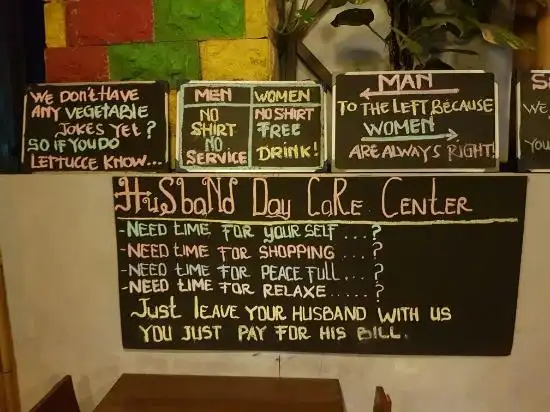 WE DON'T HAVE
ANY VEGETABLE
JOKES YET?
SO IF YOU DO
LETTUCCE KNOW...
MEN WOMEN
NO SHIRT NO SERVICE
NO SHIRT FREE DRINK!
MAN
TO THE LEFT BECAUSE
WOMEN
ARE ALWAYS RIGHT!
HuSbaNd Day CaRe CENTER
-NEED TIME FOR YOUR SELF....?
-NEED TIME FOR SHOPPING ...?
-NEED TIME FOR PEACE FULL...?
-NEED TIME FOR RELAXE.....?
JUST LEAVE YOUR HUSBAND WITH US
YOU JUST PAY FOR HIS BILL.